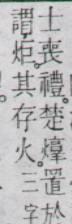 士喪禮楚焞置於
謂炬其存火三字